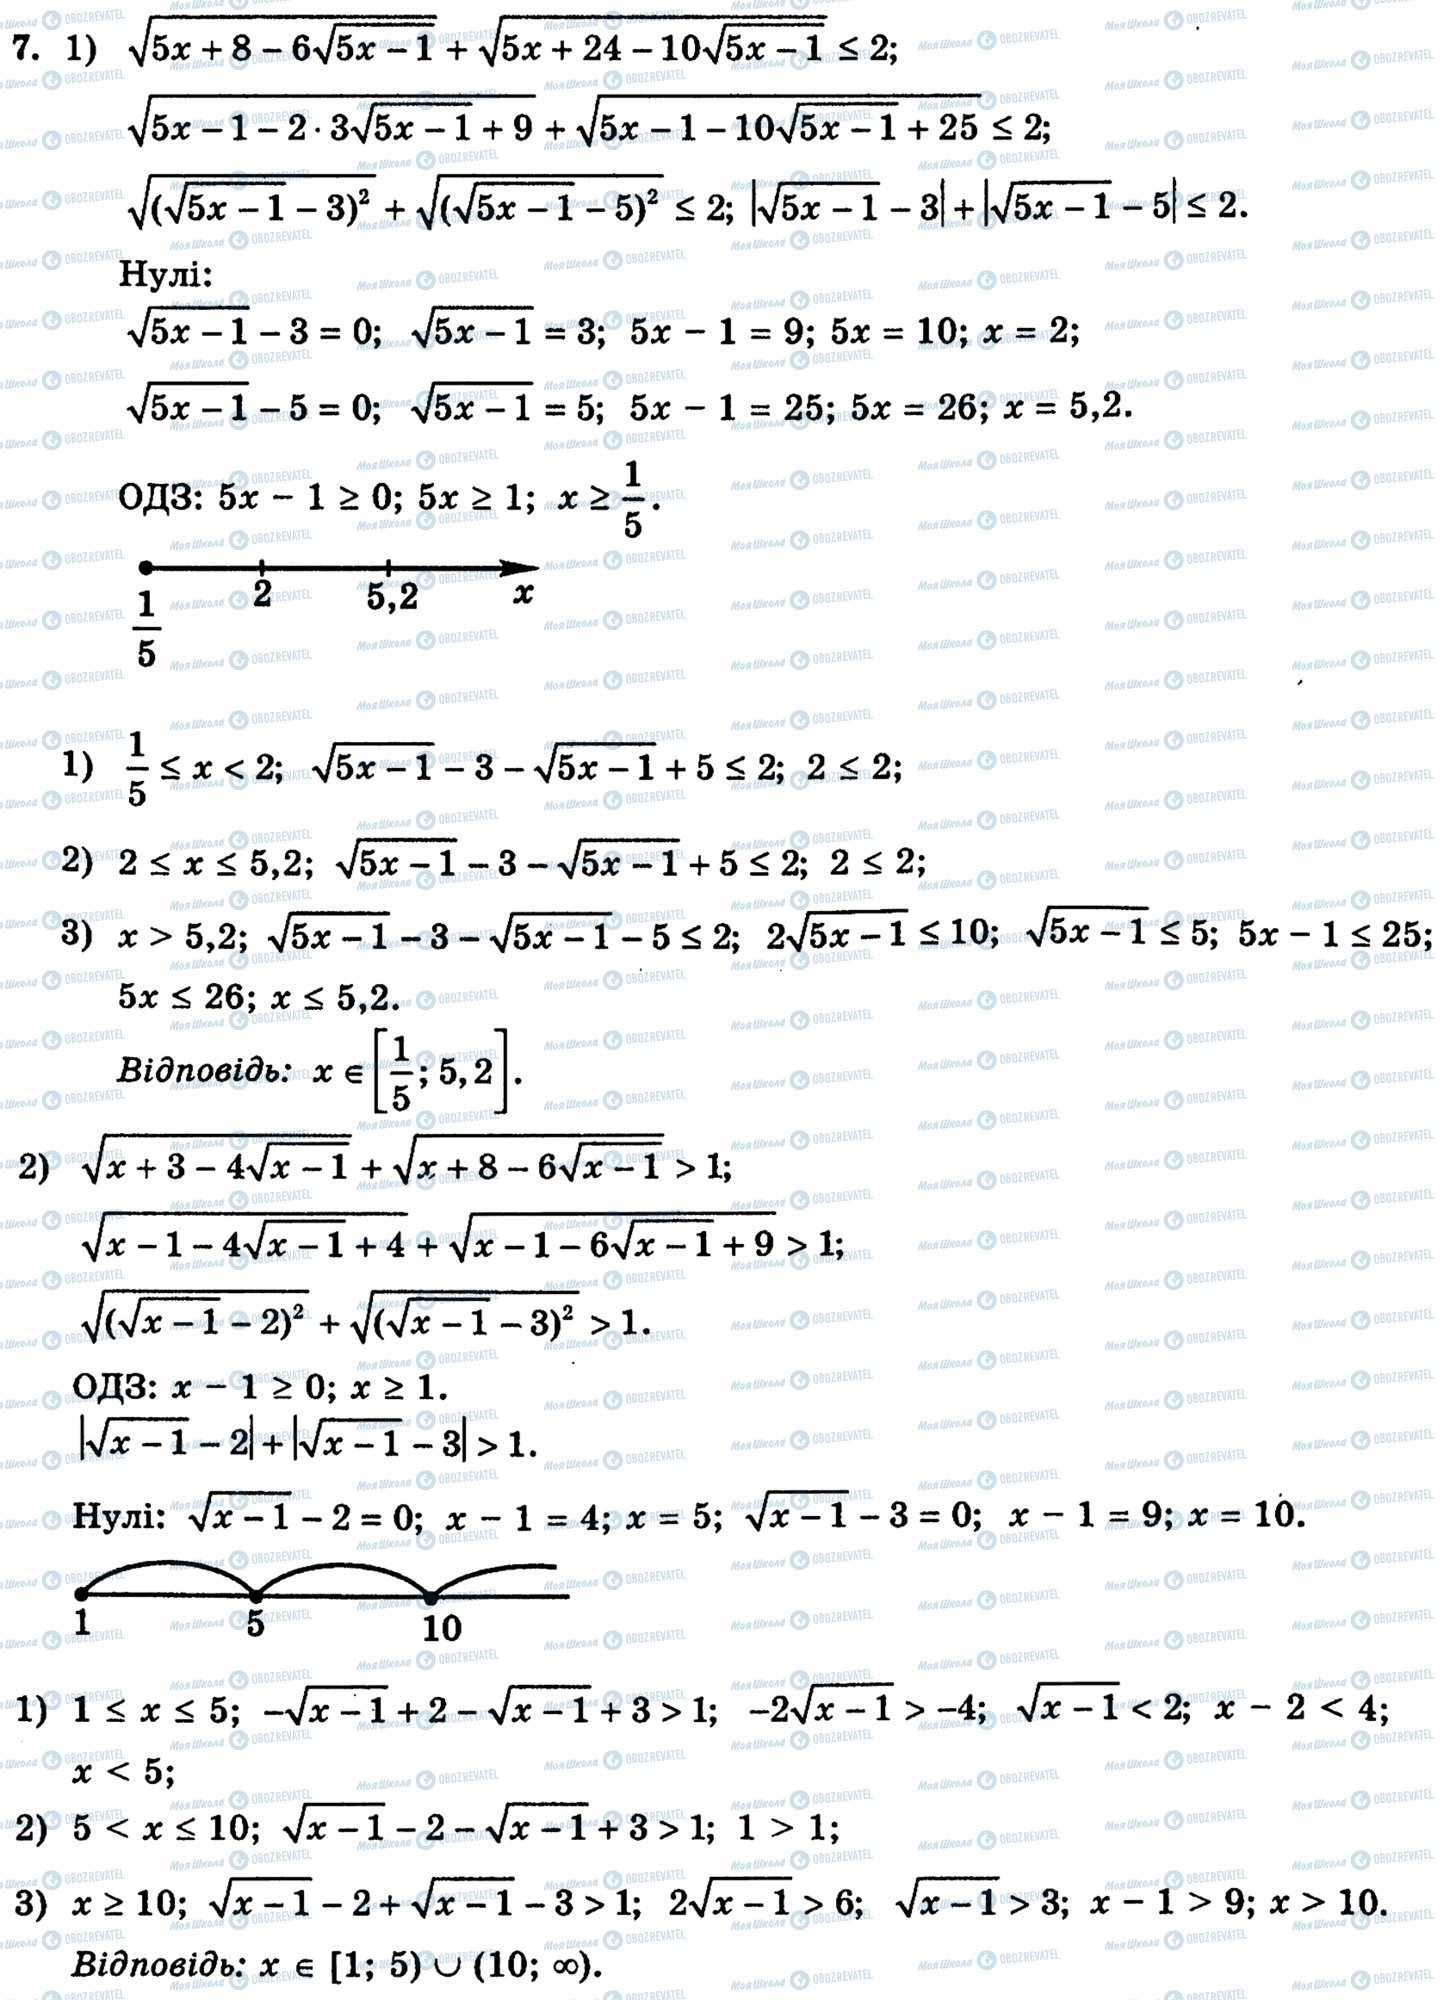 7. 1) √(5x + 8 − 6√(5x − 1)) + √(5x + 24 − 10√(5x − 1)) ≤ 2;
√(5x − 1 − 2 · 3√(5x − 1) + 9) + √(5x − 1 − 10√(5x − 1) + 25) ≤ 2;
√((√(5x − 1) − 3)²) + √((√(5x − 1) − 5)²) ≤ 2; |√(5x − 1) − 3| + |√(5x − 1) − 5| ≤ 2.
Нулі:
√(5x − 1) − 3 = 0; √(5x − 1) = 3; 5x − 1 = 9; 5x = 10; x = 2;
√(5x − 1) − 5 = 0; √(5x − 1) = 5; 5x − 1 = 25; 5x = 26; x = 5,2.
ОДЗ: 5x − 1 ≥ 0; 5x ≥ 1; x ≥ 1/5.
1/5 2 5,2 x
1) 1/5 ≤ x < 2; √(5x − 1) − 3 − √(5x − 1) + 5 ≤ 2; 2 ≤ 2;
2) 2 ≤ x ≤ 5,2; √(5x − 1) − 3 − √(5x − 1) + 5 ≤ 2; 2 ≤ 2;
3) x > 5,2; √(5x − 1) − 3 − √(5x − 1) − 5 ≤ 2; 2√(5x − 1) ≤ 10; √(5x − 1) ≤ 5; 5x − 1 ≤ 25;
5x ≤ 26; x ≤ 5,2.
Відповідь: x ∈ [1/5; 5,2].
2) √(x + 3 − 4√(x − 1)) + √(x + 8 − 6√(x − 1)) > 1;
√(x − 1 − 4√(x − 1) + 4) + √(x − 1 − 6√(x − 1) + 9) > 1;
√((√(x − 1) − 2)²) + √((√(x − 1) − 3)²) > 1.
ОДЗ: x − 1 ≥ 0; x ≥ 1.
|√(x − 1) − 2| + |√(x − 1) − 3| > 1.
Нулі: √(x − 1) − 2 = 0; x − 1 = 4; x = 5; √(x − 1) − 3 = 0; x − 1 = 9; x = 10.
1 5 10
1) 1 ≤ x ≤ 5; −√(x − 1) + 2 − √(x − 1) + 3 > 1; −2√(x − 1) > −4; √(x − 1) < 2; x − 2 < 4;
x < 5;
2) 5 < x ≤ 10; √(x − 1) − 2 − √(x − 1) + 3 > 1; 1 > 1;
3) x ≥ 10; √(x − 1) − 2 + √(x − 1) − 3 > 1; 2√(x − 1) > 6; √(x − 1) > 3; x − 1 > 9; x > 10.
Відповідь: x ∈ [1; 5) ∪ (10; ∞).